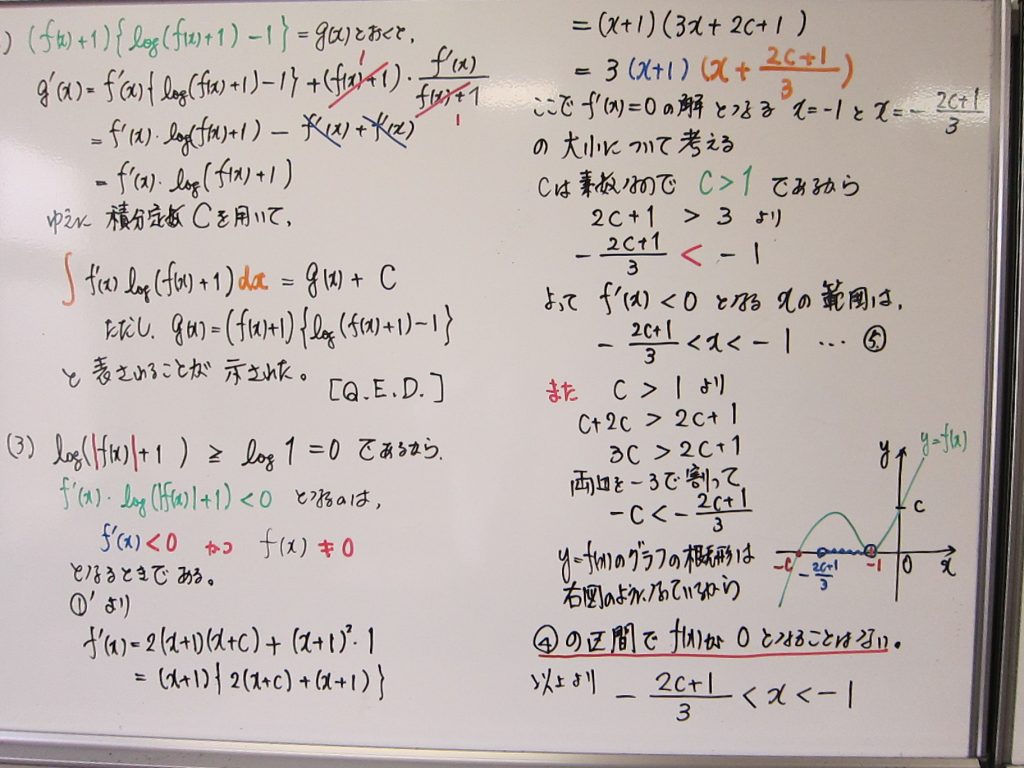 ) (f(x)+1){log(f(x)+1)-1} = g(x)とおくと,
g'(x) = f'(x){log(f(x)+1)-1} + (f(x)+1)・f'(x)/f(x)+1
1
1
= f'(x)・log(f(x)+1) - f'(x) + f'(x)
= f'(x)・log(f(x)+1)
ゆえに 積分定数 Cを用いて,
∫ f'(x) log(f(x)+1) dx = g(x) + C
ただし, g(x) = (f(x)+1){log(f(x)+1)-1}
と 表されることが 示された。 [Q.E.D.]
(3) log(|f(x)|+1) ≧ log 1 = 0 であるから,
f'(x)・log(|f(x)|+1) < 0 となるのは,
f'(x) < 0 かつ f(x) ≠ 0
となるときである。
①' より
f'(x) = 2(x+1)(x+c) + (x+1)²・1
= (x+1){2(x+c) + (x+1)}
= (x+1)(3x+2c+1)
= 3(x+1)(x + 2c+1/3)
ここで f'(x)=0 の解 となる x=-1 と x=-2c+1/3
の 大小について 考える
Cは素数なので C>1 であるから
2c+1 > 3 より
-2c+1/3 < -1
よって f'(x)<0 となる xの 範囲は,
-2c+1/3 < x < -1 … ⑤
また C > 1 より
C+2C > 2C+1
3C > 2C+1
両辺を -3で 割って
-C < -2C+1/3
y=f(x)のグラフの概形は
右図のようになっているから
y
y=f(x)
C
-C
-2c+1/3
-1
0
x
④の区間で f(x)が 0 となることはない。
以上より -2c+1/3 < x < -1